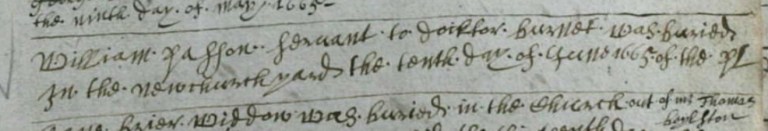 the ninth day. of. may. 1665
William. passon. servant. to docktor. burnet. was. buried
In. the. newchurch yard the. tenth. day. of. June 1665. of. the. pl
brier. widdow was. buried. in. the. Church out of mr Thomas
boylston